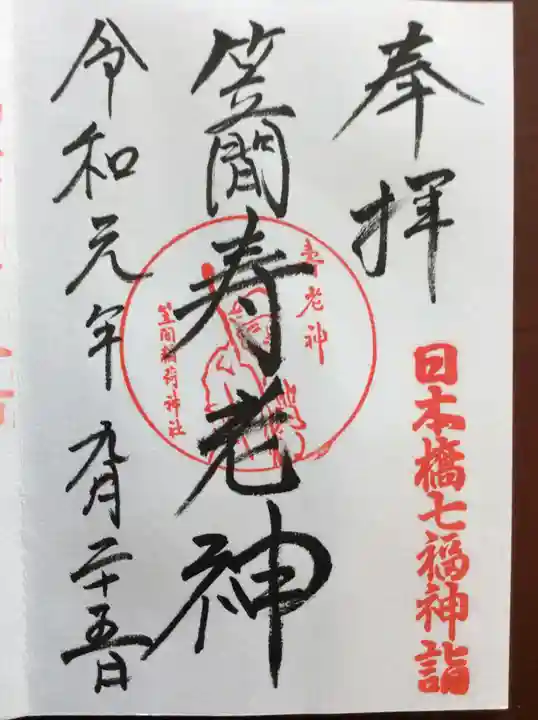 奉拝
日本橋七福神詣
笠間寿老神
寿老神
笠間稲荷神社
令和元年九月二十五日